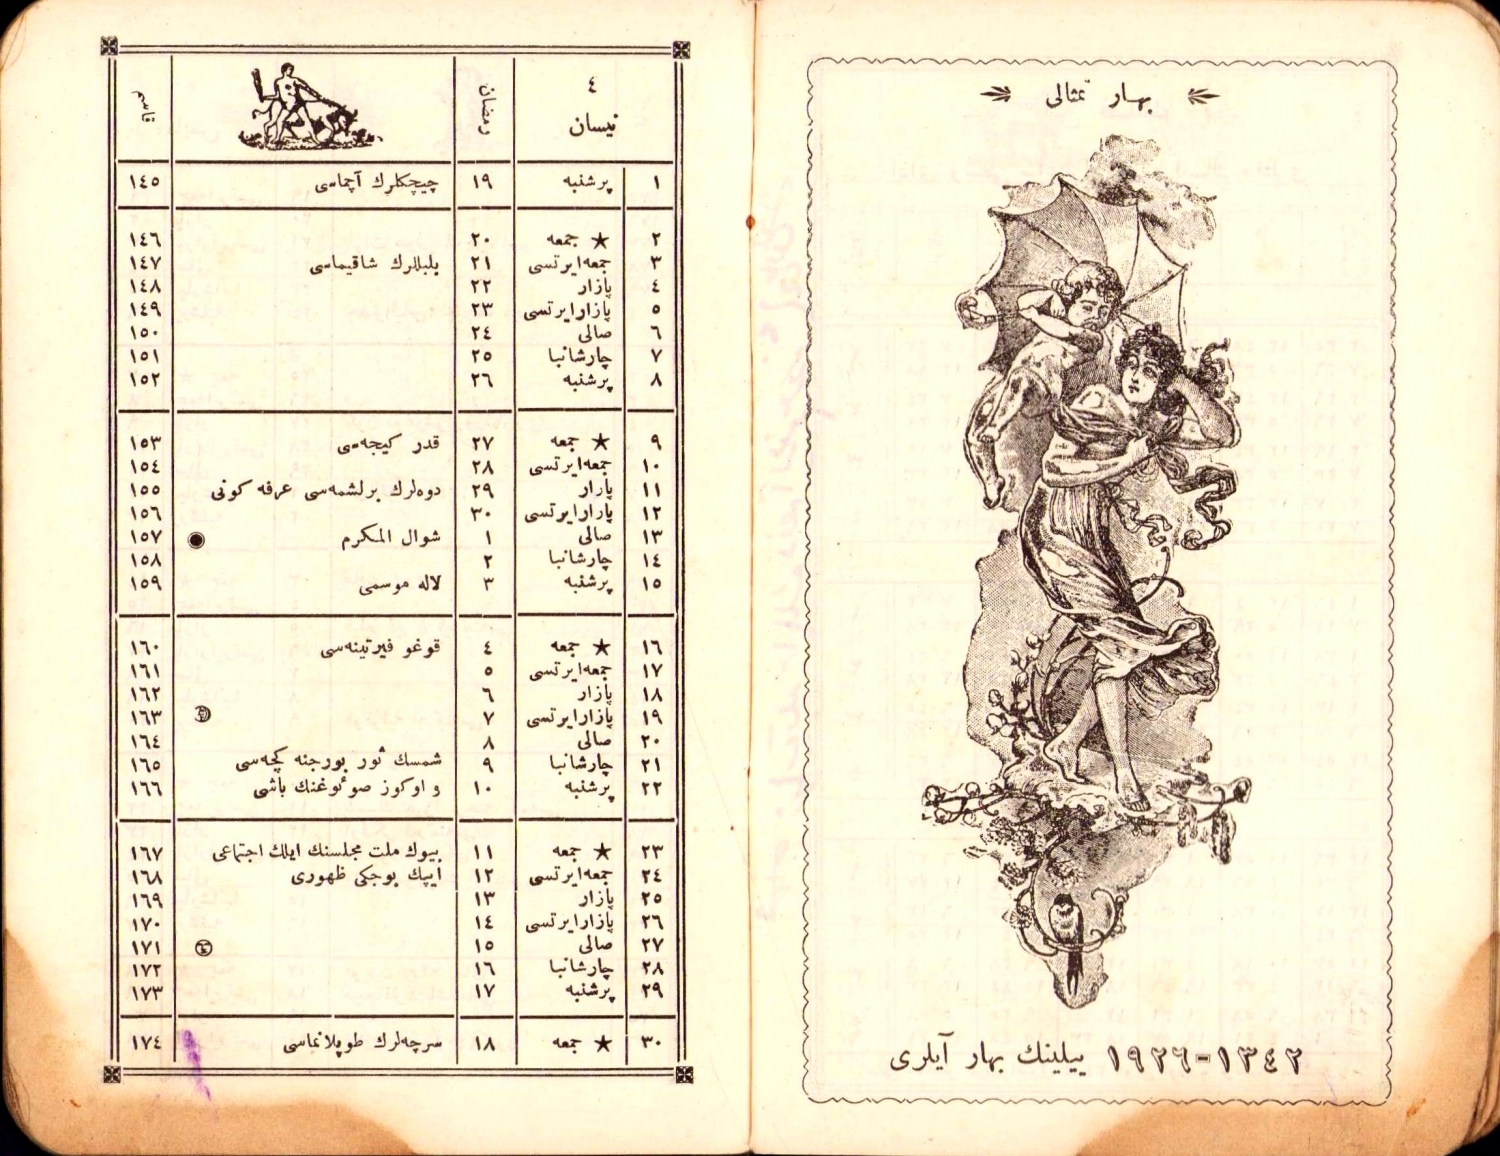 بهار تمثالی
١٣٤٢-١٩٢٦ ییلینك بهار آیلری
٤ نیسان رمضان قاسم
١ پرشنبه ١٩ چیچكلرك آچماسی ١٤٥
٢ ★ جمعه ٢٠ ١٤٦
٣ جمعه‌ایرتسی ٢١ بلبللرك شاقیماسی ١٤٧
٤ پازار ٢٢ ١٤٨
٥ پازارایرتسی ٢٣ ١٤٩
٦ صالی ٢٤ ١٥٠
٧ چارشانبا ٢٥ ١٥١
٨ پرشنبه ٢٦ ١٥٢
٩ ★ جمعه ٢٧ قدر كیجه‌سی ١٥٣
١٠ جمعه‌ایرتسی ٢٨ ١٥٤
١١ پازار ٢٩ دوه‌لرك برلشمه‌سی عرفه كونی ١٥٥
١٢ پازارایرتسی ٣٠ ١٥٦
١٣ صالی ١ شوال المكرم ١٥٧
١٤ چارشانبا ٢ ١٥٨
١٥ پرشنبه ٣ لاله موسمی ١٥٩
١٦ ★ جمعه ٤ قوغو فیرتینه‌سی ١٦٠
١٧ جمعه‌ایرتسی ٥ ١٦١
١٨ پازار ٦ ١٦٢
١٩ پازارایرتسی ٧ ١٦٣
٢٠ صالی ٨ ١٦٤
٢١ چارشانبا ٩ شمسك ثور بورجنه كچه‌سی ١٦٥
٢٢ پرشنبه ١٠ و اوكوز صوئوغنك باشی ١٦٦
٢٣ ★ جمعه ١١ بیوك ملت مجلسنك ایلك اجتماعی ١٦٧
٢٤ جمعه‌ایرتسی ١٢ ایپك بوجكی ظهوری ١٦٨
٢٥ پازار ١٣ ١٦٩
٢٦ پازارایرتسی ١٤ ١٧٠
٢٧ صالی ١٥ ١٧١
٢٨ چارشانبا ١٦ ١٧٢
٢٩ پرشنبه ١٧ ١٧٣
٣٠ ★ جمعه ١٨ سرچه‌لرك طوپلانماسی ١٧٤